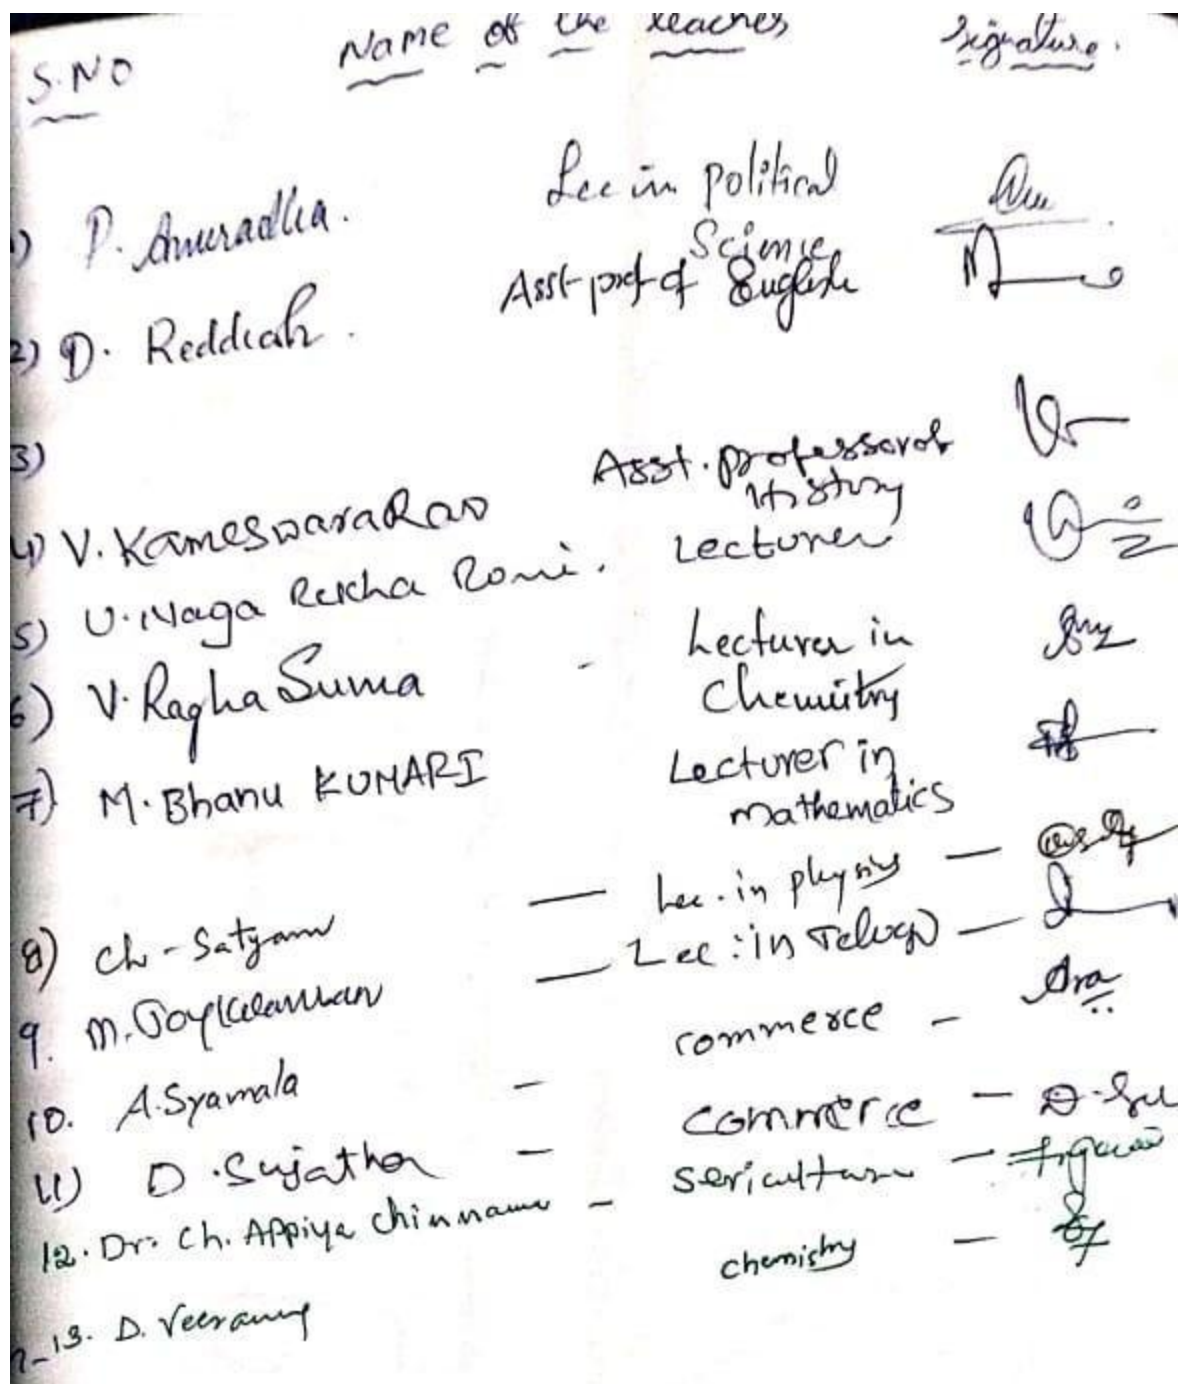 S.NO Name of the teacher Signature.
1) P. Anuradha. Lec in political
Science
2) D. Reddiah. Asst prof of English
3)
4) V. KameswaraRao Asst. professor of
History
5) U. Naga Rekha Rani. Lecturer
6) V. Ragha Suma - Lecturer in
Chemistry
7) M. Bhanu KUMARI Lecturer in
mathematics
8) Ch - Satyam — Lec. in physics —
9. M. — Lec: in Telugu —
10. A. Syamala — commerce —
11) D. Sujatha — commerce —
12. Dr. Ch. Appiya chinnamma - sericulture —
13. D. chemistry —